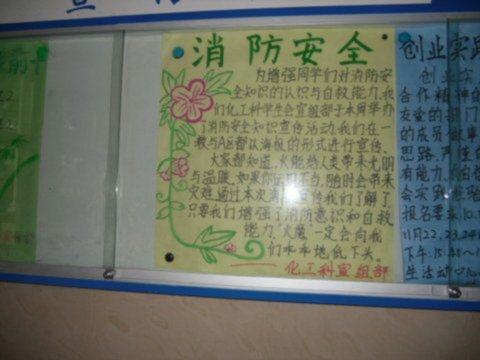 消防安全
为增强同学们对消防安
全知识的认识与自救能力,我
们化工科学生会宣组部于本周举办
了消防安全知识宣传活动,我们在一
教与A区都以海报的形式进行宣传,
大家都知道,火能给人类带来光明
与温暖,如果你运用不当,随时会带来
灾难,通过本次消防宣传我们了解了,
只要我们增强了消防意识和自救
能力,"火魔"一定会向我
们乖乖地低下头。
化工科宣组部
创业实践
创业实
合作精神的
友爱的部门
的成员做事
思路,严谨的
有能力,
会实践
报名要求:10.
11月22,23,24
下午:15:45~1
生活动中心